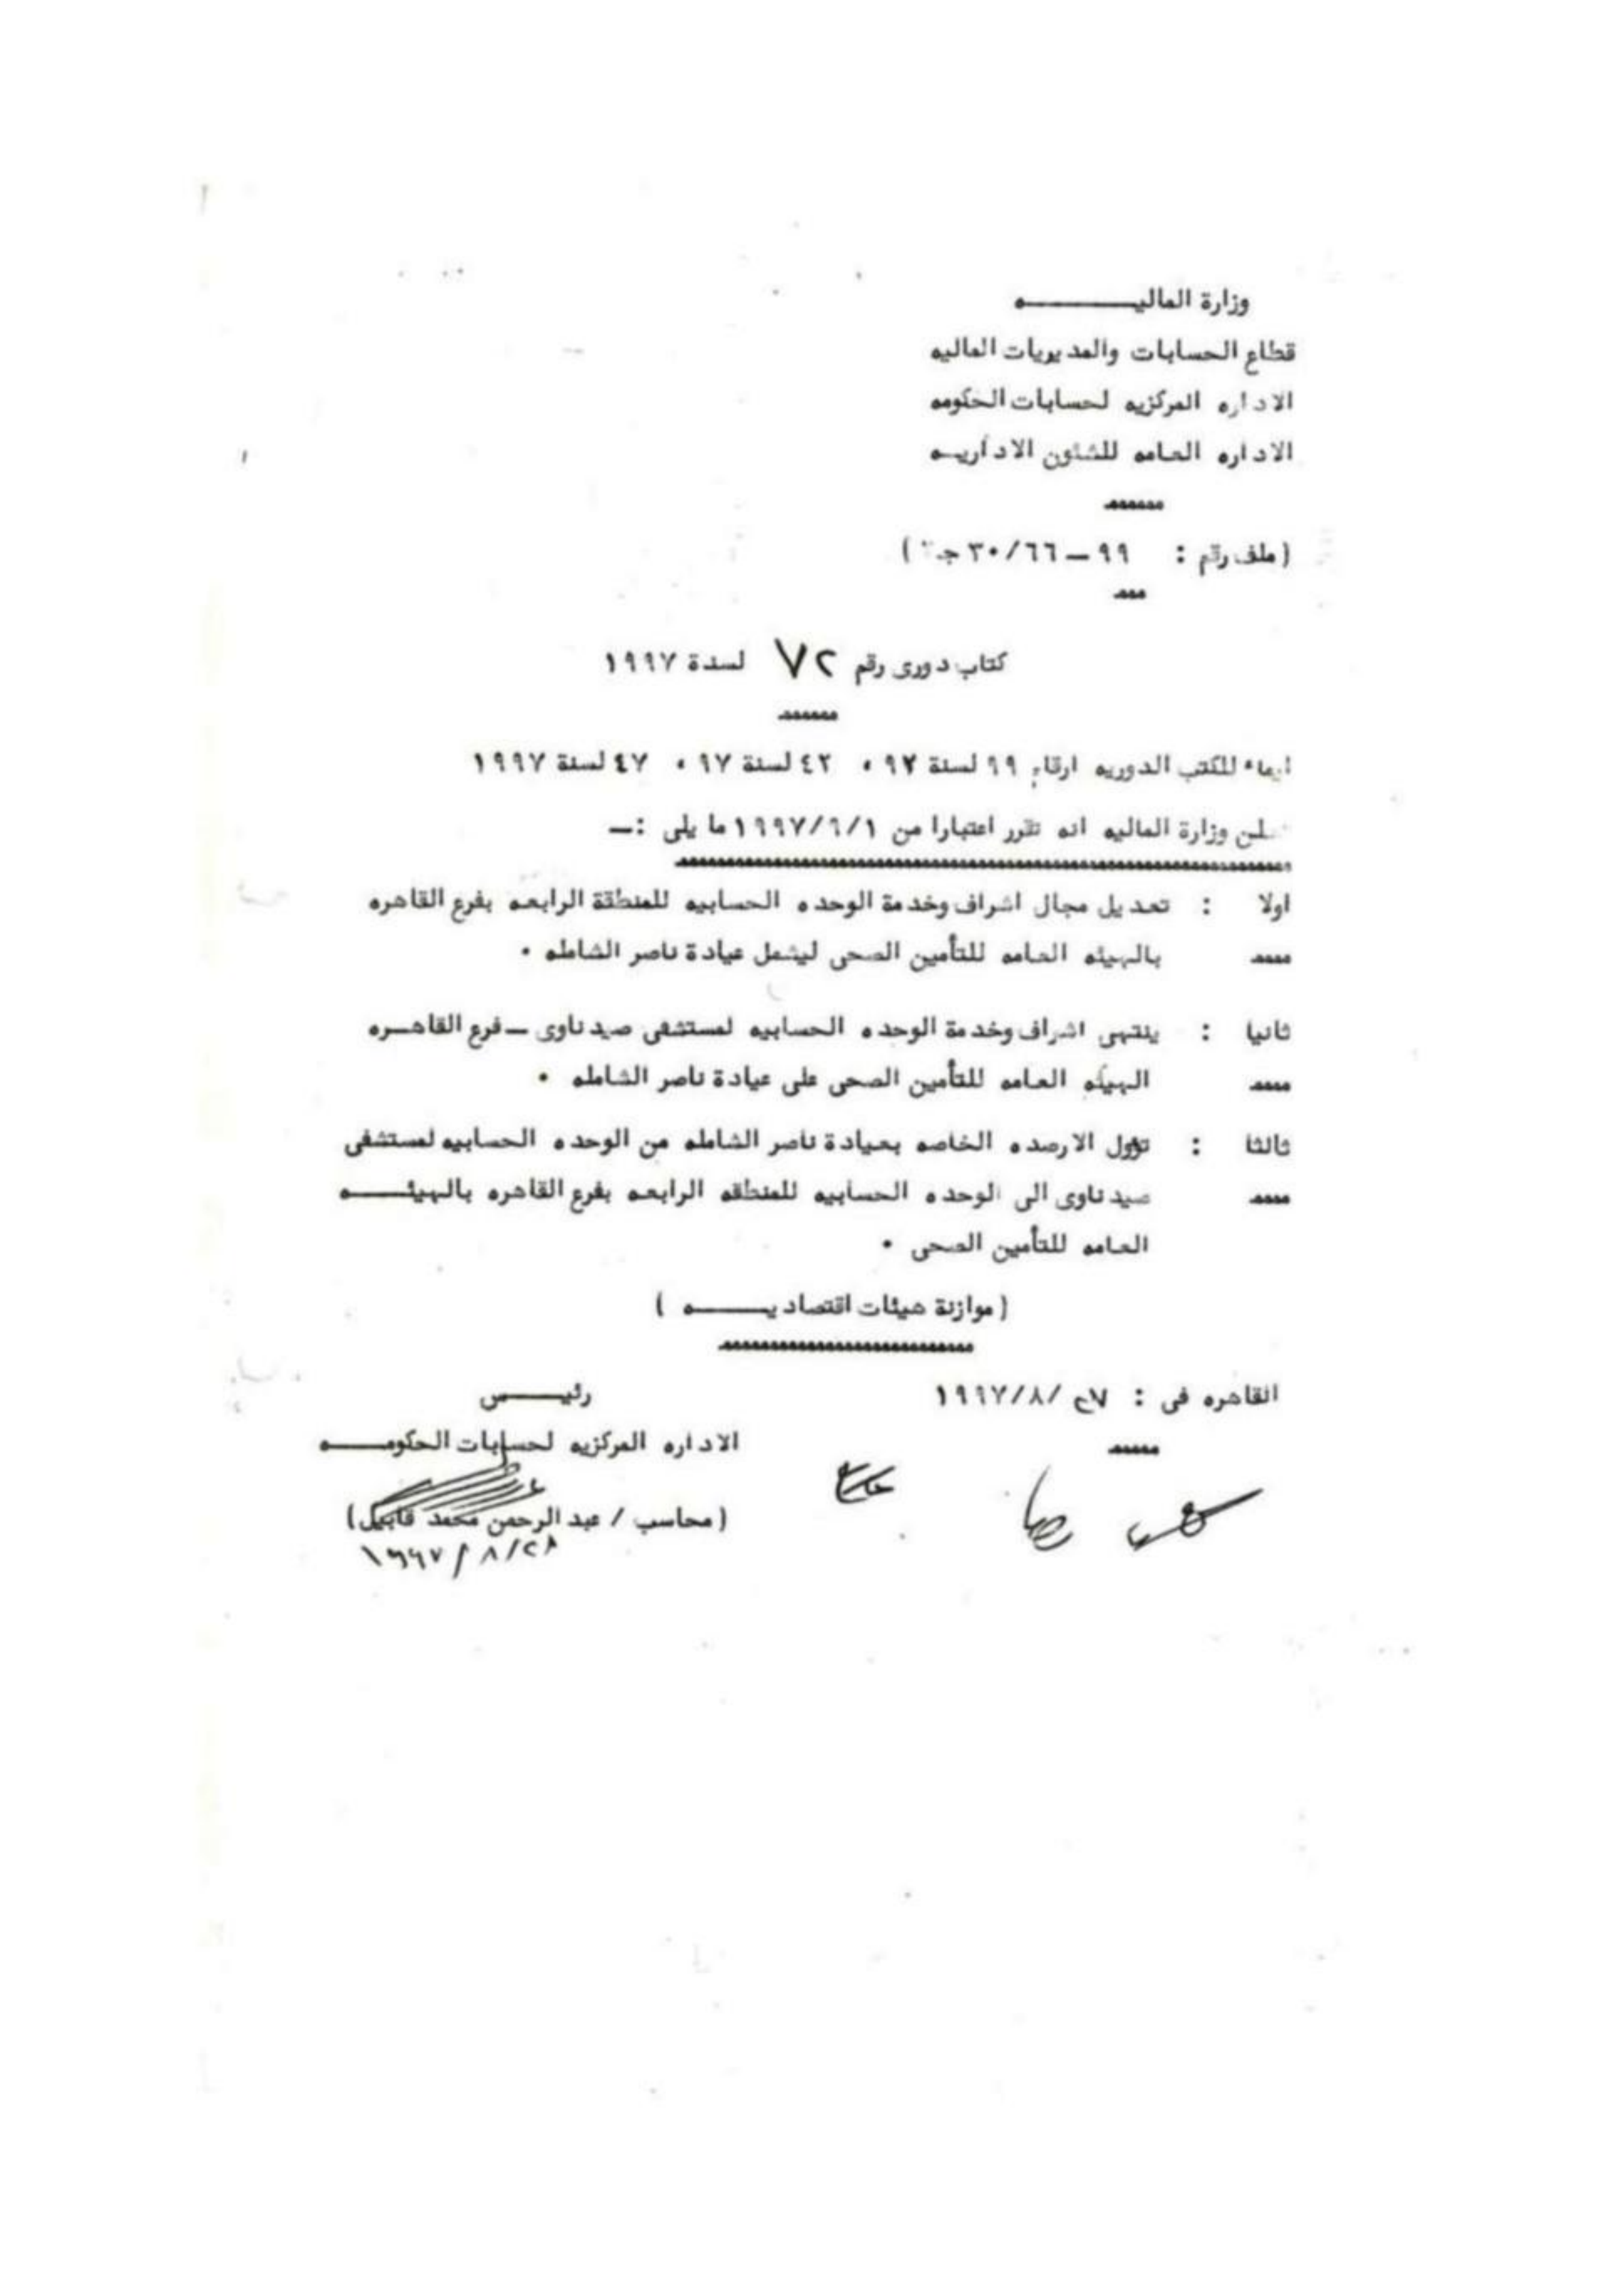 وزارة الماليـــــــــه
قطاع الحسابات والمديريات الماليه
الاداره المركزيه لحسابات الحكومه
الاداره العامه للشئون الاداريـه
(ملف رقم : ٩٩ – ٣٠/٦٦ جـ )
كتاب دورى رقم ٧٢ لسنة ١٩٩٧
ايماء للكتب الدوريه ارقام ٩٩ لسنة ٩٢ ، ٤٢ لسنة ٩٧ ، ٤٧ لسنة ١٩٩٧
تعلن وزارة الماليه انه تقرر اعتبارا من ١٩٩٧/٩/١ ما يلى :ــ
اولا : تعديل مجال اشراف وخدمة الوحده الحسابيه للمنطقة الرابعه بفرع القاهره
بالهيئه العامه للتأمين الصحى ليشمل عيادة ناصر الشامله .
ثانيا : ينتهى اشراف وخدمة الوحده الحسابيه لمستشفى صيدناوى ــ فرع القاهــره
الهيئه العامه للتأمين الصحى على عيادة ناصر الشامله .
ثالثا : تؤول الارصده الخاصه بعيادة ناصر الشامله من الوحده الحسابيه لمستشفى
صيدناوى الى الوحده الحسابيه للمنطقه الرابعه بفرع القاهره بالهيئـــــه
العامه للتأمين الصحى .
(موازنة هيئات اقتصاديـــــــه )
القاهره فى : ٢٧/٨/١٩٩٧
رئيـــــس
الاداره المركزيه لحسابات الحكومـــــه
(محاسب / عبد الرحمن محمد قابيل)
٢٨/٨/١٩٩٧